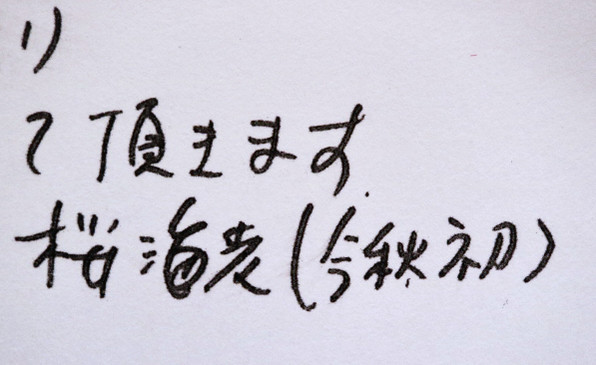 り
て頂きます
桜海老(今秋初)